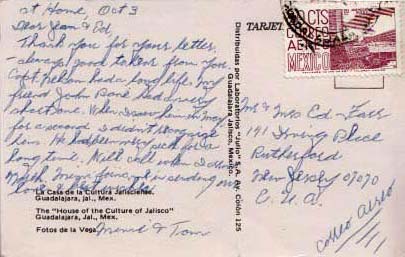 at Home Oct 3
Dear Jean & Ed,
Thank you for your letter,
- always good to hear from you.
Capt. Nelson had a long life. My
friend John Bone had a very
short one. When I saw him in May
for a second I didn't recognize
him. He had been very sick for a
long time. Will call when I
North.
La Casa de la Cultura Jalisciense.
Guadalajara, Jal., Mex.
The "House of the Culture of Jalisco"
Guadalajara, Jal., Mexico.
Fotos de la Vega.
& Tom
Distribuidas por Laboratorios "Julio" S.A. Av. Colón 125
Guadalajara Jalisco, Mexico.
TARJET
80 CTS
CORREO
AEREO
MEXICO
Mr & Mrs Ed - Farr
191 Irving Place
Rutherford
New Jersey 07070
E. U. A.
Correo Aereo